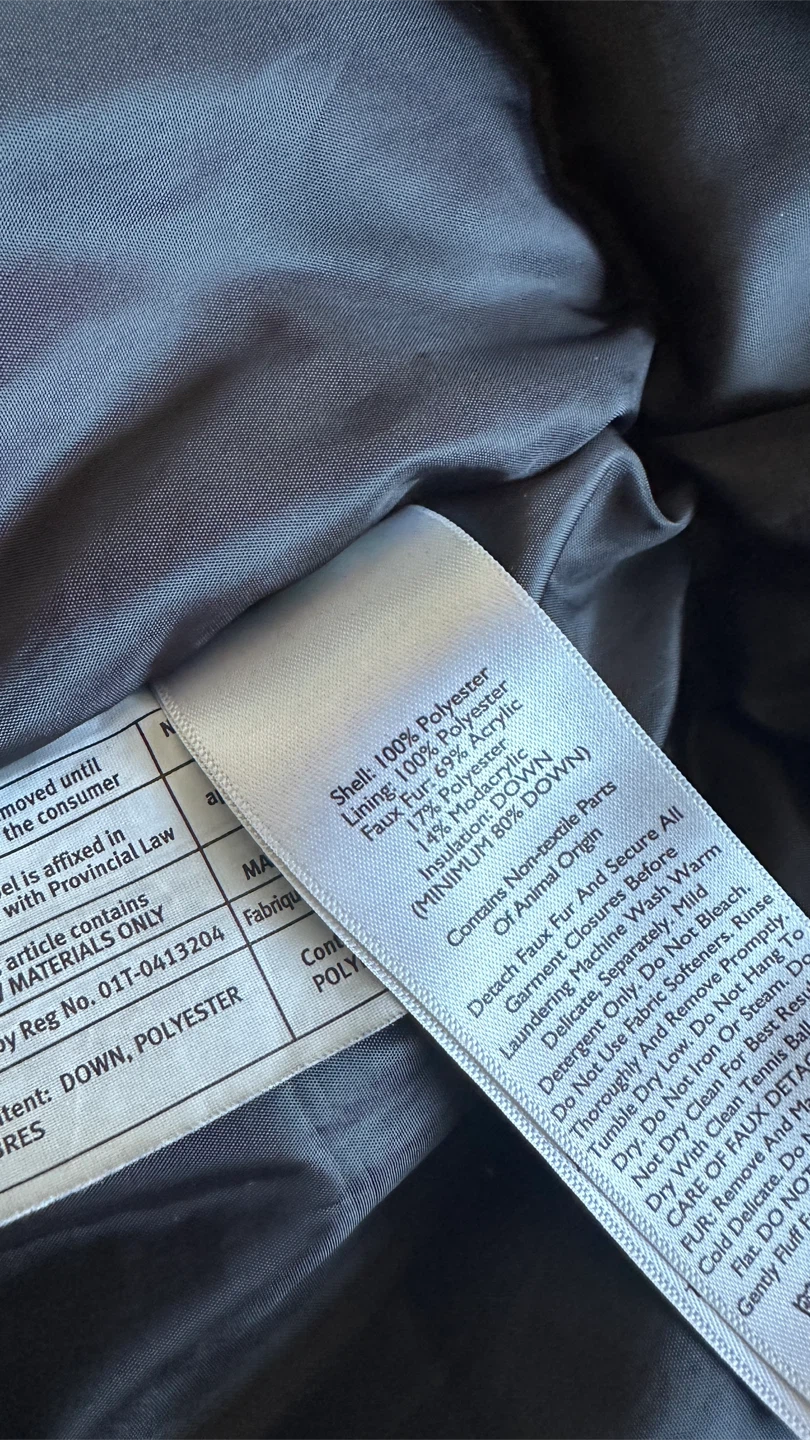 moved until
the consumer
el is affixed in
with Provincial Law
article contains
MATERIALS ONLY
by Reg No. 01T-0413204
DOWN, POLYESTER
MA
Fabriqu
Cont
POLY
Shell: 100% Polyester
Lining: 100% Polyester
Faux Fur: 69% Acrylic
17% Polyester
14% Modacrylic
Insulation: DOWN
(MINIMUM 80% DOWN)
Contains Non-textile Parts
Of Animal Origin
Detach Faux Fur And Secure All
Garment Closures Before
Laundering Machine Wash Warm
Delicate, Separately. Mild
Detergent Only. Do Not Bleach.
Do Not Use Fabric Softeners. Rinse
Thoroughly And Remove Promptly.
Tumble Dry Low. Do Not Hang To
Dry. Do Not Iron Or Steam. Do
Not Dry Clean For Best Res
Dry With Clean Tennis Ba
CARE OF FAUX DETA
FUR: Remove And Ma
Cold Delicate. Do
Flat. DO NO
Gently Fluff